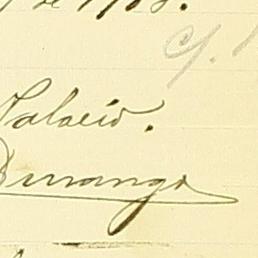 de 1908.
Palacio.
Durango